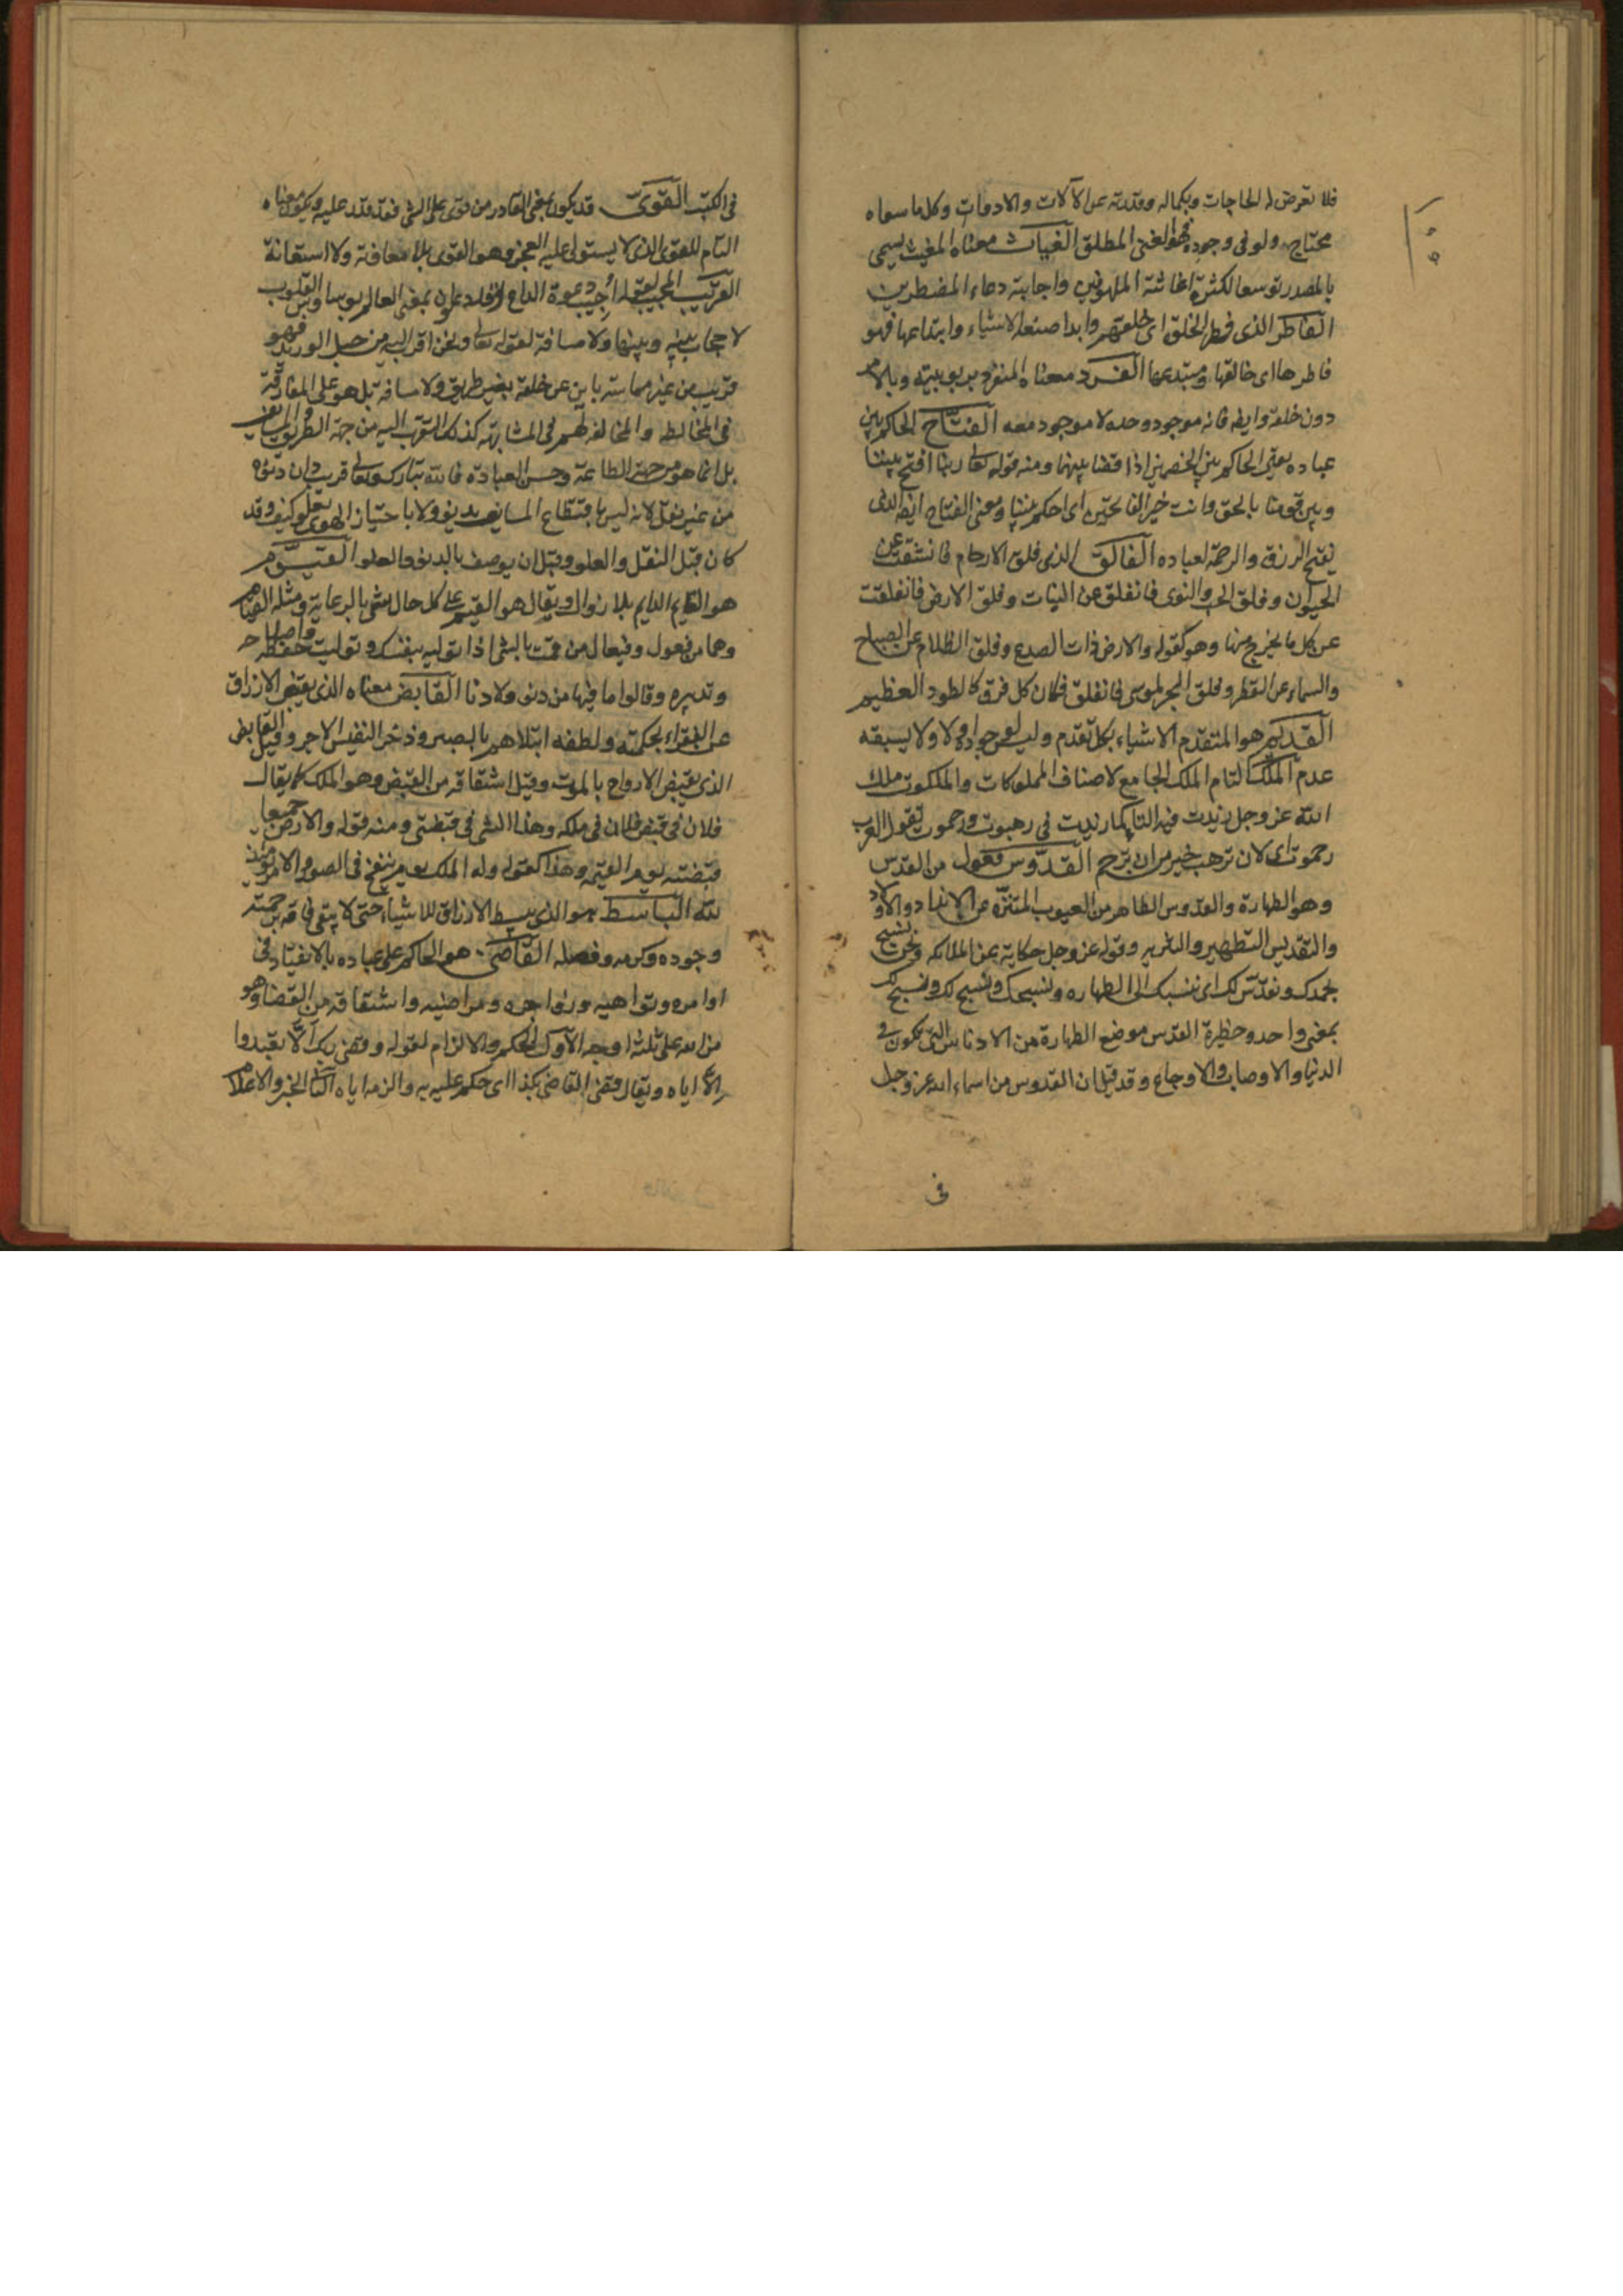 فلا تعرض له الحاجات وبكماله وقدرته عن الآلات والادوات وكل ما سواه
محتاج ولو فى وجوده فهو الغنى المطلق الغياث معناه المغيث سمى
بالمصدر توسعا لكثرة اغاثته الملهوفين واجابته دعاء المضطرين
الفاطر الذى فطر الخلق اى خلقهم وابدا صنعة الاشياء وابتداعها فهو
فاطرها اى خالقها ومبتدعها الفرد معناه المنفرد بربوبيته وبالامر
دون خلقه وايضا فانه موجود وحده لا موجود معه الفتاح الحاكم بين
عباده يعنى الحاكم بين الخصمين اذا قضا بينهما ومنه قوله تعالى ربنا افتح بيننا
وبين قومنا بالحق وانت خير الفاتحين اى احكم بيننا ومعنى الفتاح ايضا الذى
يفتح الرزق والرحمة لعباده الفالق الذى فلق الارحام فانشقت عن
الحيوان وفلق الحب والنوى فانفلق عن النبات وفلق الارض فانفلقت
عن كل ما يخرج منها وهو كقوله والارض ذات الصدع وفلق الظلام عن الصباح
والسماء عن القطر وفلق البحر لموسى فانفلق فكان كل فرق كالطود العظيم
القديم هو المتقدم الاشياء بكل تقدم وليس لوجوده اول ولا يسبقه
عدم الملك التام الملك الجامع لاصناف المملوكات والملكوت ملك
الله عز وجل زيدت فيه التا كما زيدت فى رهبوت ورحموت تقول العرب
رحموت اى لان ترهب خير من ان ترحم القدوس فعول من القدس
وهو الطهارة والقدوس الطاهر من العيوب المتنزه عن الانداد والاولاد
والتقديس التطهير والتنزيه وقوله عز وجل حكاية عن الملائكة ونحن نسبح
بحمدك ونقدس لك اى ننسبك الى الطهارة ونسبحك ونسبح لك ونسبح لك
بمعنى واحد وحظيرة القدس موضع الطهارة من الادناس التى تكون فى
الدنيا والاوصاب والاوجاع وقد قيل ان القدوس من اسماء الله عز وجل
فى
فى الكتب القوى قد يكون بمعنى القادر من قوى على الشى فقد قدر عليه ويكون معناه
التام للقوى الذى لا يستولى عليه العجز وهو القوى بلا معاناة ولا استعانة
القريب المجيب لقوله اجيب دعوة الداع اذا دعان وقد يكون بمعنى العالم بوساوس القلوب
لا حجاب بينه وبينها ولا مسافة لقوله تعالى ونحن اقرب اليه من حبل الوريد فهو
قريب من غير مماسة باين عن خلقه بغير طريق ولا مسافة بل هو على المفارقة
فى المخالطة والمخالفة لهم فى المشابهة كذلك التقرب اليه من جهة الطريق والمسايف
بل انما هو من جهة الطاعة وحسن العبادة فالله تبارك وتعالى قريب دان دنوه
من غير نقل لانه ليس باقتطاع المسايف يدنو ولا باجتياز الهوى يعلو كيف وقد
كان قبل النقل والعلو وقبل ان يوصف بالدنو والعلو القيوم
هو القايم الدايم بلا زوال ويقال هو القيم على كل حال شى بالرعاية ومثله القيام
وهما من فيعول وفيعال من قمت بالشى اذا توليه بنفسك وتوليت حفظه واصلاحه
وتدبيره وقالوا ما فيها من دنو ولا دنا القابض معناه الذى يقبض الارزاق
عن الفقراء بحكمته ولطفه ابتلاهم بالصبر وذخر النفيس الاجر وقيل القابض
الذى يقبض الارواح بالموت وقيل اشتقاقه من القبض وهو الملك كما يقال
فلان فى قبض فلان فى ملكه وهذا الشى فى قبضتى ومنه قوله والارض جميعا
قبضته يوم القيمة وهذا كقوله وله الملك يوم ينفخ فى الصور والامر يومئذ
لله الباسط هو الذى يبسط الارزاق للاشياء حتى لا يبقى فاقة برحمته
وجوده وكرمه وفضله القاضى هو الحاكم على عباده بالانقياد فى
اوامره ونواهيه وزواجره ومراضيه واشتقاقه من القضا وهو
من الله على ثلثة اوجه الاول الحكم والالزام لقوله وقضى ربك الا تعبدوا
الا اياه ويقال قضى القاضى بكذا اى حكم عليه به والزمه اياه الثانى الخبر والاعلام